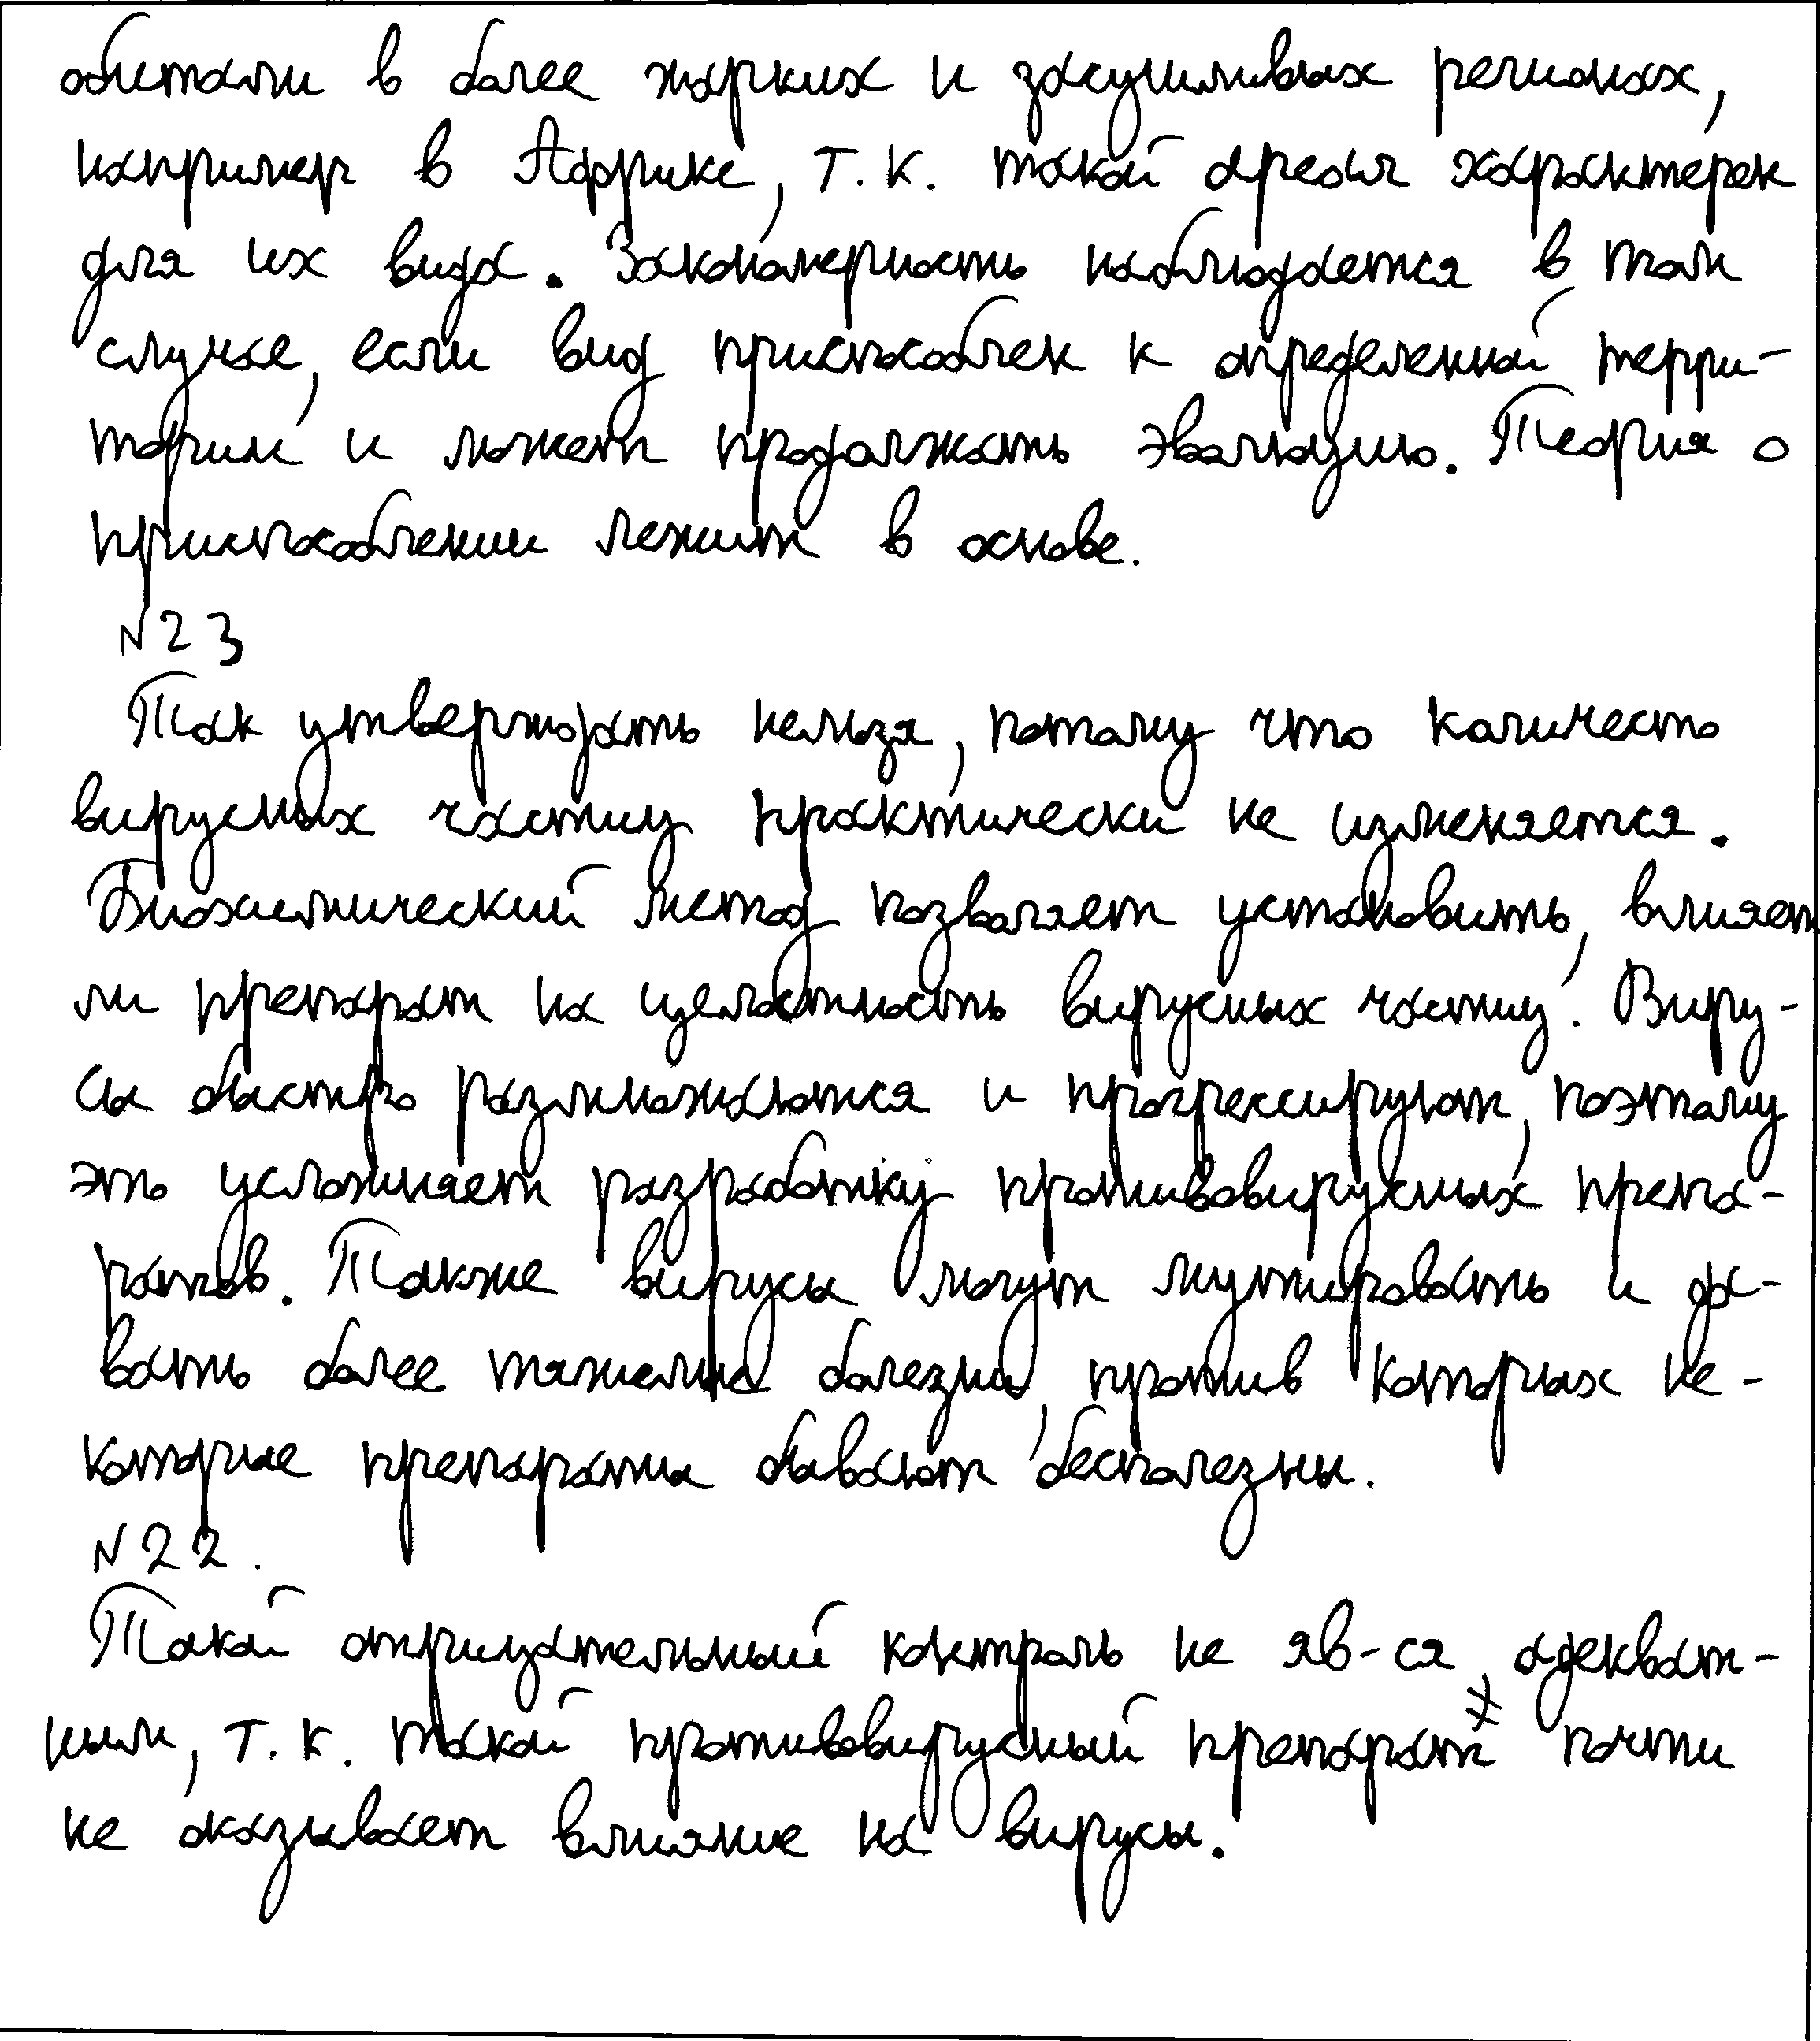 обитали в более жарких и засушливых регионах,
например в Африке, т.к. такой ареал характерен
для их вида. Закономерность наблюдается в том
случае, если вид приспособлен к определенной терри-
тории и может продолжать эволюцию. Теория о
приспособлении лежит в основе.
№23
Так утверждать нельзя, потому что количесто
вирусных частиц практически не изменяется.
Биохимический метод позволяет установить, влияет
ли препарат на целостность вирусных частиц. Виру-
сы быстро размножаются и прогрессируют, поэтому
это усложняет разработку противовирусных препа-
ратов. Также вирусы могут мутировать и да-
вать более тяжелые болезни, против которых не-
которые препараты бывают бесполезны.
№22.
Такой отрицательный контроль не яв-ся адекват-
ным, т.к. такой противовирусный препарат почти
не оказывает влияние на вирусы.